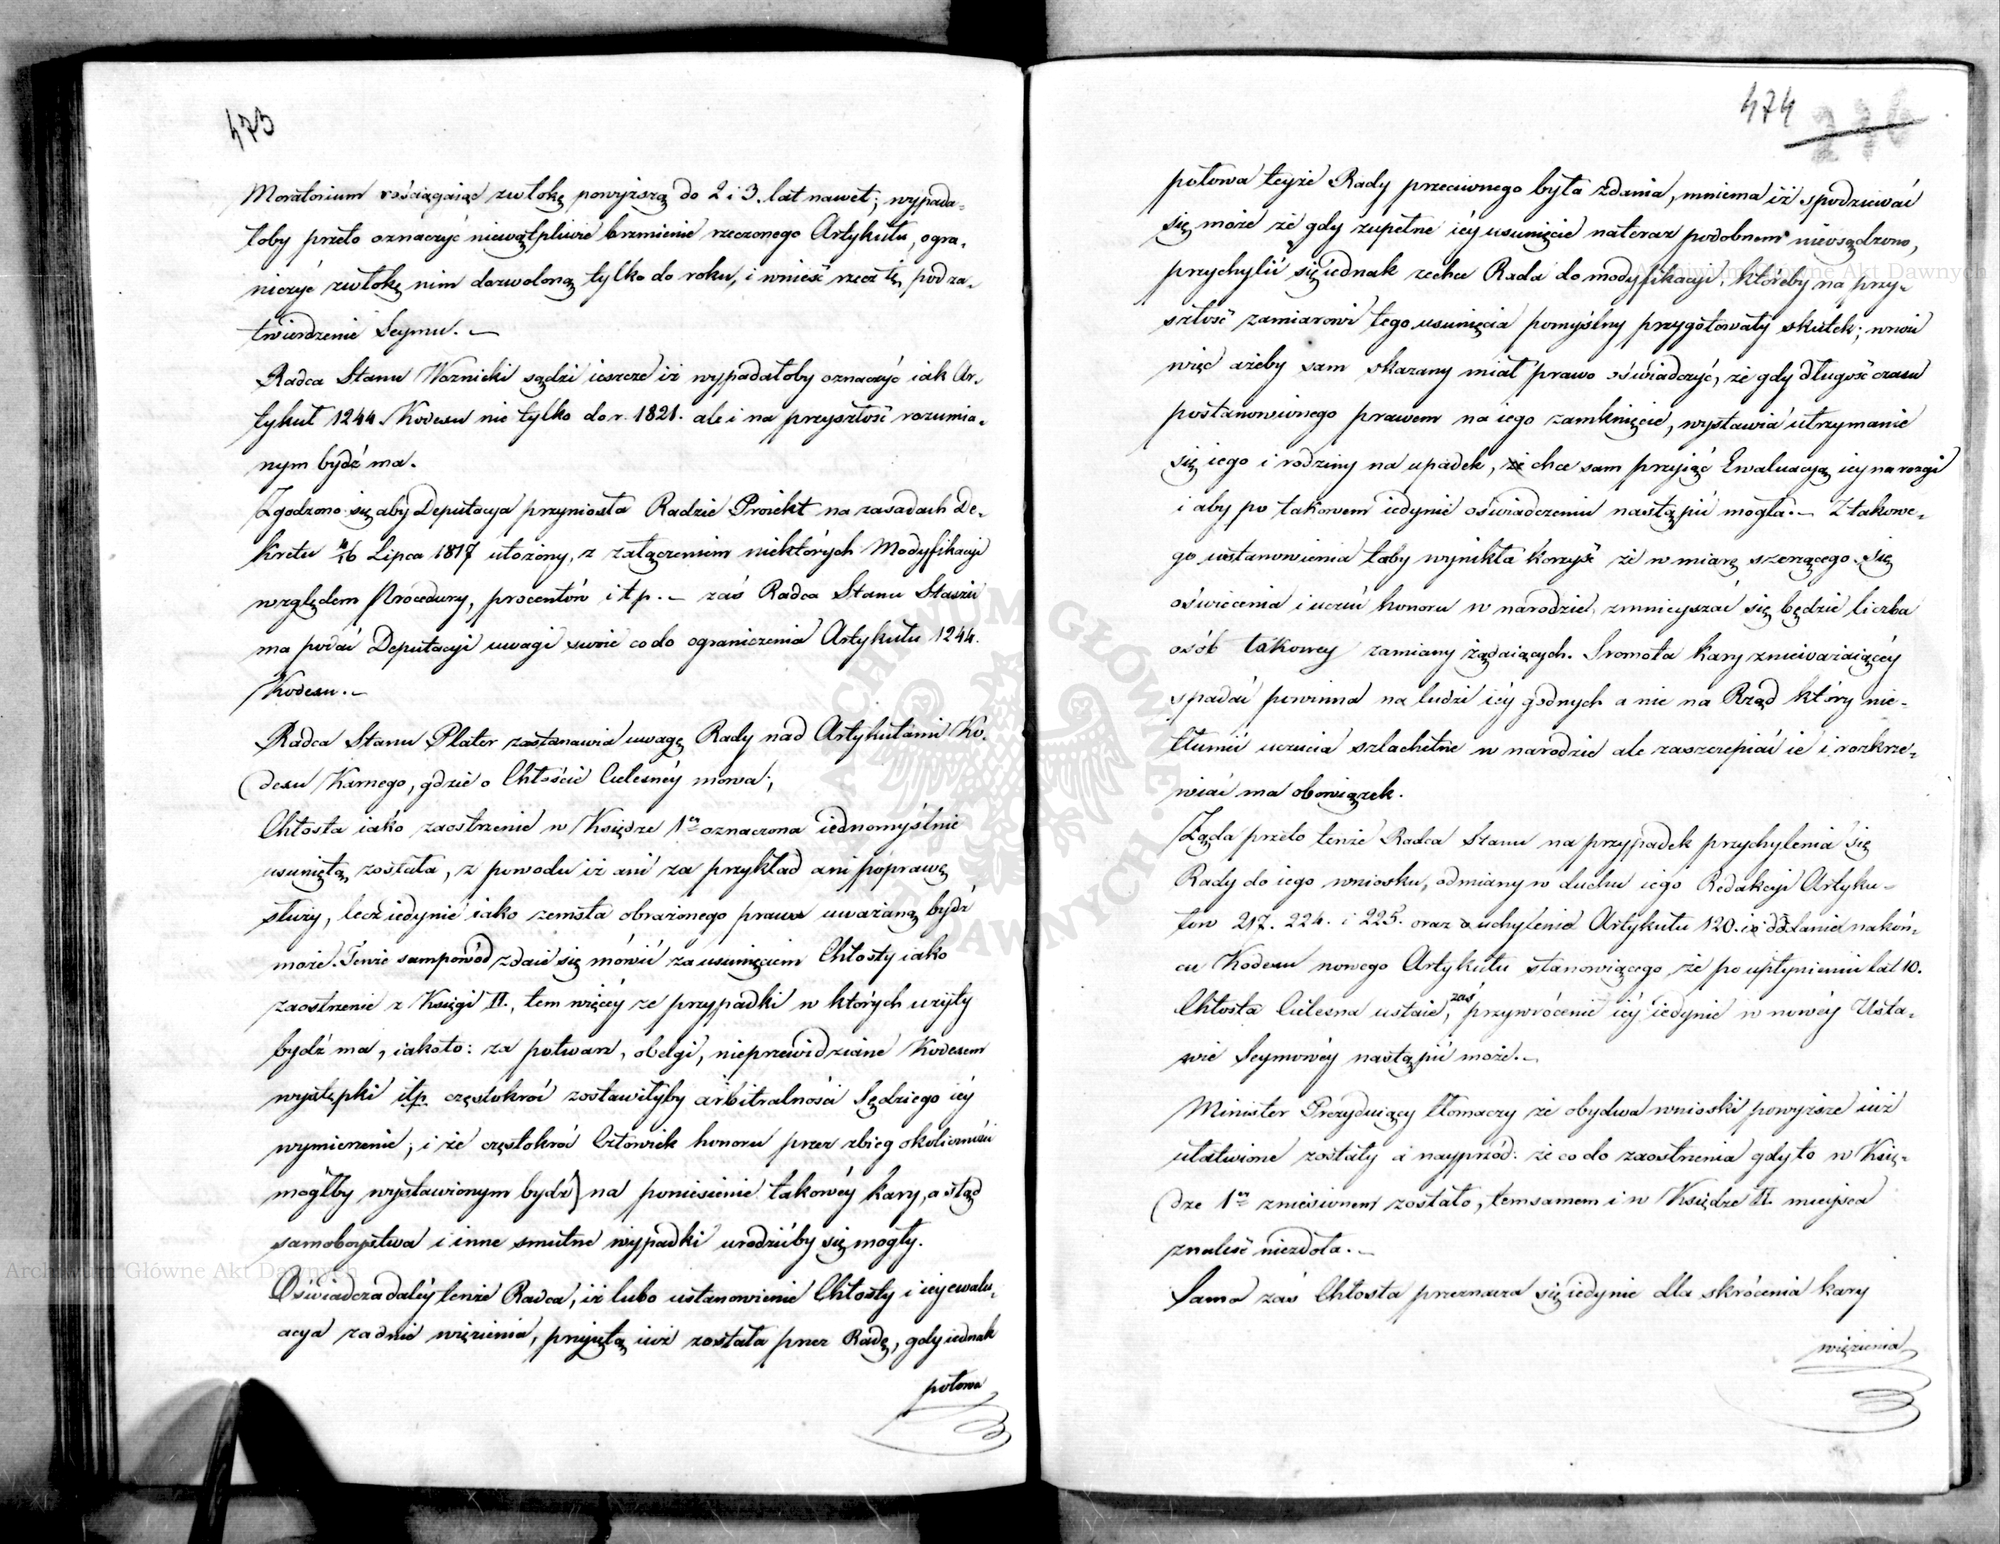 473
Moratorium rościągaiąc zwłokę powyższą do 2 i 3. lat nawet; wypada-
łoby przeto oznaczyć niewątpliwie brzmienie rzeczonego Artykułu, ogra-
niczyć zwłokę nim dozwoloną tylko do roku, i wnieść rzecz tę pod za-
twierdzenie Seymu. —
Radca Stanu Woznicki sądzi ieszcze iż wypadałoby oznaczyć iak Ar-
tykuł 1244 Kodexu nie tylko do r. 1821. ale i na przyszłość rozumia-
nym bydź ma.
Zgodzono się aby Deputacya przyniosła Radzie Proiekt na zasadach De-
kretu 4/16 Lipca 1817 ułożony, z załączeniem niektórych Modyfikacji
względem Procedury, procentów i t p. — zaś Radca Stanu Staszic
ma podać Deputacyi uwagi swoie co do ograniczenia Artykułu 1244.
Kodexu. —
Radca Stanu Plater zastanawia uwagę Rady nad Artykułami Ko-
dexu Karnego, gdzie o Chłoście Cielesnéy mowa;
Chłosta iako zaostrzenie w Księdze 1ey oznaczona iednomyślnie
usuniętą została, z powodu iż ani za przykład ani poprawę
służy, lecz iedynie iako zemsta obrażonego prawa uważaną bydź
może. Tenże sam powód zdaie się mówić za usunięciem Chłosty iako
zaostrzenie z Księgi II., tem więcéy że przypadki w których użyty
bydź ma, iakoto: za potwarz, obelgi, nieprzewidziane Kodexem
występki itp. częstokroć zostawiłyby arbitralności Sędziego iéy
wymierzenie; i że częstokroć Człowiek honoru przez zbieg okoliczności
mógłby wystawionym bydź na poniesienie takowéy kary, a stąd
samobóystwa i inne smutne wypadki urodzićby się mogły.
Oświadcza daléy tenże Radca, iż lubo ustanowienie Chłosty i iéy ewalu-
acya za dnie więzienia, przyiętą iuż została przez Radę, gdy iednak
połowa
474
276
połowa teyże Rady przeciwnego była zdania, mniema iż spodziewać
się może że gdy zupełne iéy usunięcie na teraz podobnem nieosądzono,
przychylić się iednak zechce Rada do modyfikacyi, któreby na przy-
szłość zamiarowi tego usunięcia pomyślny przygotowały skutek; wnosi
więc ażeby sam skazany miał prawo oświadczyć, że gdy długość czasu
postanowionego prawem na iego zamknięcie, wystawia utrzymanie
się iego i rodziny na upadek, że chce sam przyiąć Ewaluacyą iéy na rozgi
i aby po takowem iedynie oświadczeniu nastąpić mogła. — Z takowe-
go ustanowienia taby wynikła korzyść że w miarę szerzącego się
oświecenia i uczuć honoru w narodzie, zmnieyszać się będzie liczba
osób takowey zamiany żądaiących. Sromota kary znieważaiącéy
spadać powinna na ludzi iéy godnych a nie na Rząd który nie-
tłumić uczucia szlachetne w narodzie ale zaszczepiać ie i rozkrze-
wiać ma obowiązek.
Żąda przeto tenże Radca Stanu na przypadek przychylenia się
Rady do iego wniosku, odmiany w duchu iego Redakcyi Artyku-
łów 217. 224. i 225. oraz uchylenia Artykułu 120. i dodania na koń-
cu Kodexu nowego Artykułu stanowiącego, że po upłynieniu lat 10.
Chłosta Cielesna ustaie, zaś przywrócenie iéy iedynie w nowéy Usta-
wie Seymowéy nastąpić może. —
Minister Prezyduiący tłomaczy że obydwa wnioski powyższe iuż
ułatwione zostały a nayprzód: że co do zaostrzenia gdy to w Księ-
dze 1ey zniesionem zostało, temsamem i w Księdze II. mieysca
znaleść niezdoła. —
Sama zaś Chłosta przeznacza się iedynie dla skrócenia kary
więzienia
Archiwum Główne Akt Dawnych
Archiwum Główne Akt Dawnych
ARCHIWUM GŁÓWNE AKT DAWNYCH